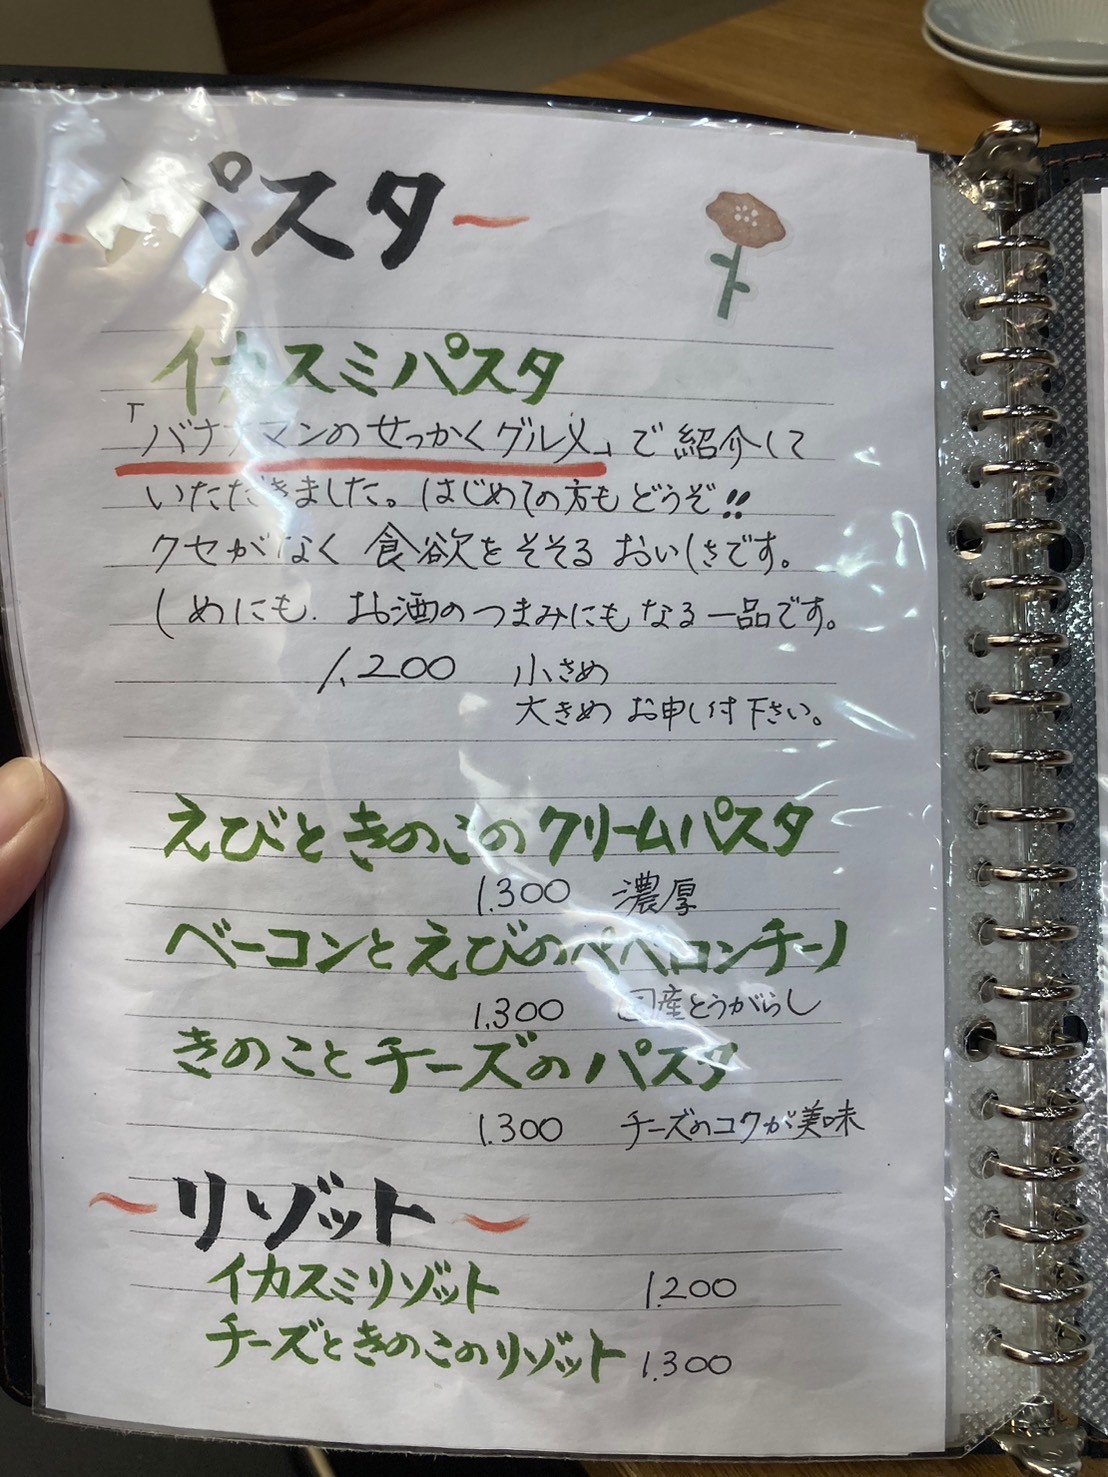 ～パスタ～
イカスミパスタ
「バナナマンのせっかくグルメ」で紹介して
いただきました。はじめての方もどうぞ!!
クセがなく食欲をそそるおいしさです。
しめにも、お酒のつまみにもなる一品です。
1,200 小さめ
大きめ お申し付下さい。
えびときのこのクリームパスタ
1,300 濃厚
ベーコンとえびのペペロンチーノ
1,300 国産とうがらし
きのことチーズのパスタ
1,300 チーズのコクが美味
～リゾット～
イカスミリゾット 1,200
チーズときのこのリゾット 1,300